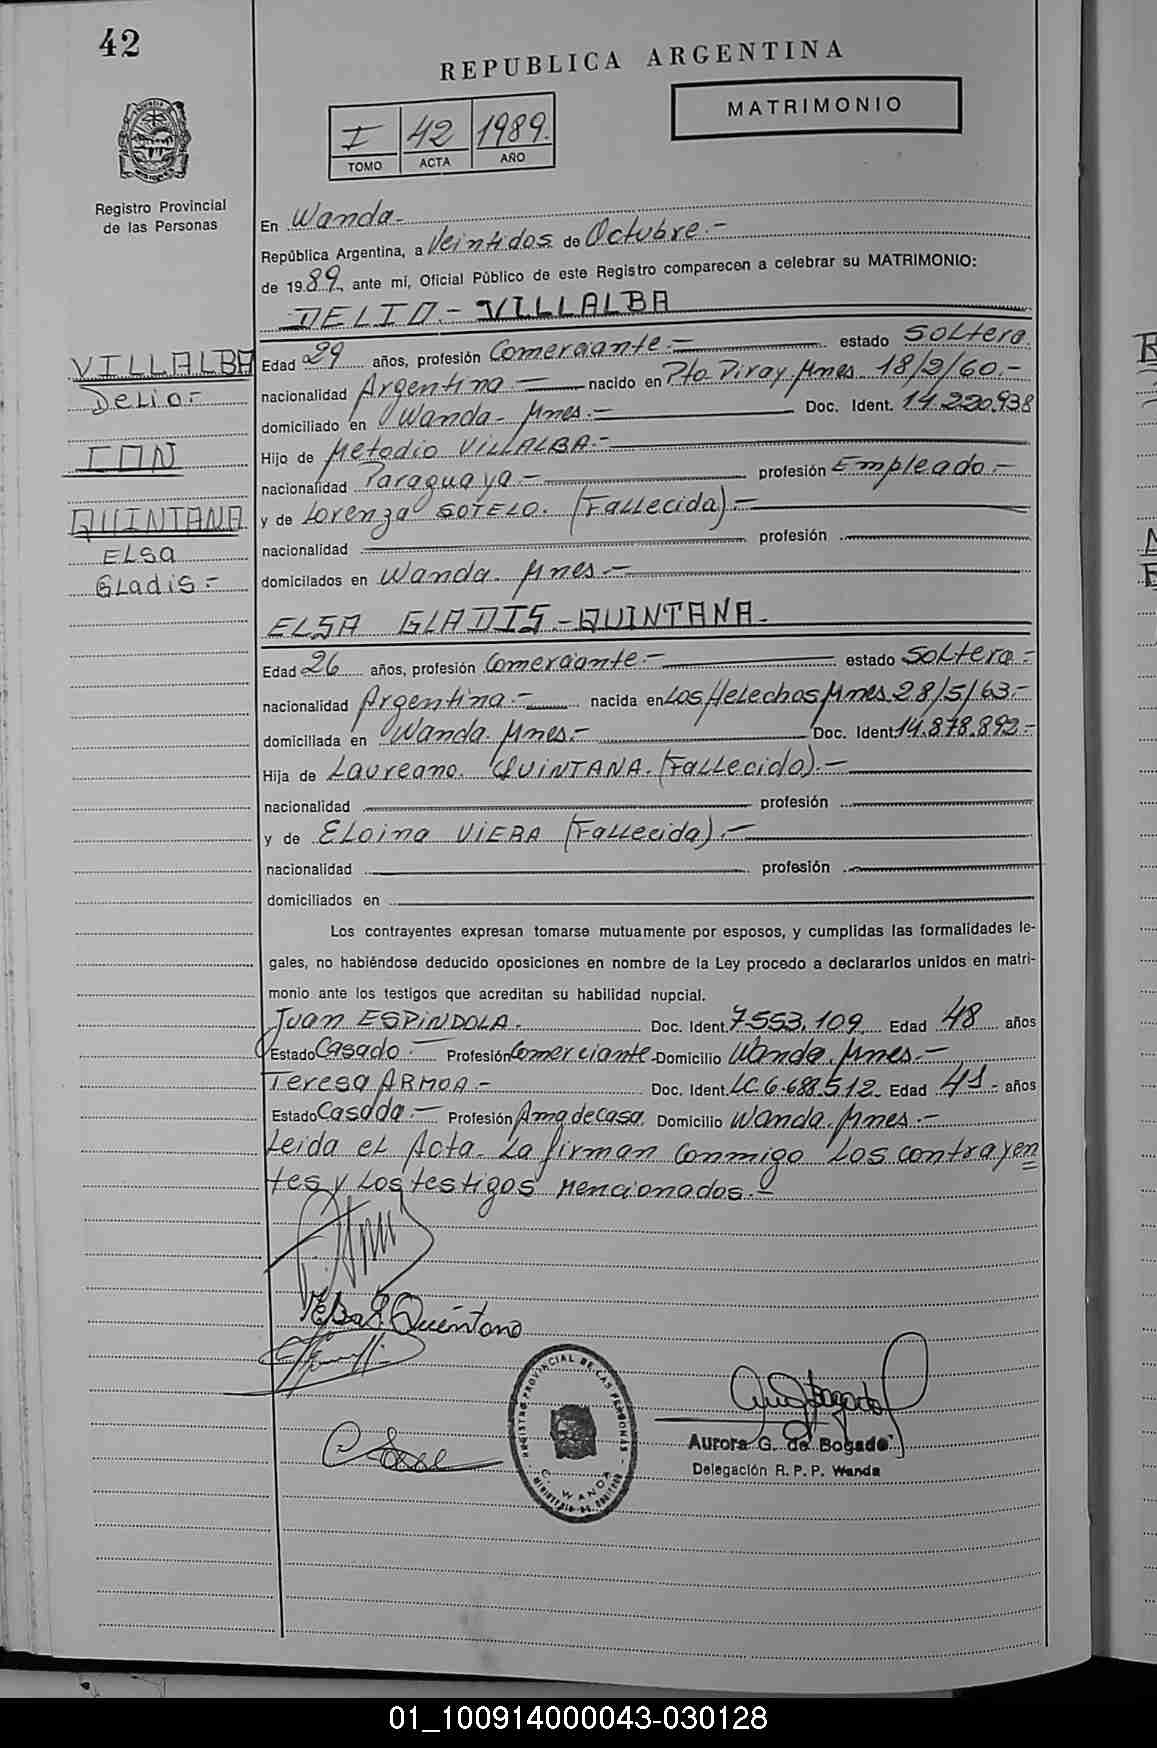 42
REPUBLICA ARGENTINA
MATRIMONIO
I 42 1989.
TOMO ACTA AÑO
Registro Provincial
de las Personas
En Wanda.-
República Argentina, a Veintidos de Octubre.-
de 1989, ante mí, Oficial Público de este Registro comparecen a celebrar su MATRIMONIO:
DELIO.- VILLALBA
VILLALBA
Delio.-
CON
QUINTANA
ELSA
GLadis.-
Edad 29 años, profesión Comerciante.- estado Soltero.
nacionalidad Argentina.- nacido en Pto Piray. Mnes. 18/2/60.-
domiciliado en Wanda- Mnes.- Doc. Ident. 14.220.938
Hijo de Metodio VILLALBA.-
nacionalidad Paraguaya.- profesión Empleado.-
y de Lorenza SOTELO. (Fallecida).-
nacionalidad profesión
domicilados en Wanda. Mnes.-
ELSA GLADIS-QUINTANA.
Edad 26 años, profesión Comerciante.- estado Soltera.-
nacionalidad Argentina.- nacida en Los Helechos Mnes 28/5/63.-
domiciliada en Wanda. Mnes.- Doc. Ident 14.878.892.-
Hija de Laureano. QUINTANA. (Fallecido).-
nacionalidad profesión
y de Eloina VIERA (Fallecida).-
nacionalidad profesión
domiciliados en
Los contrayentes expresan tomarse mutuamente por esposos, y cumplidas las formalidades le-
gales, no habiéndose deducido oposiciones en nombre de la Ley procedo a declararlos unidos en matri-
monio ante los testigos que acreditan su habilidad nupcial.
Juan ESPINDOLA. Doc. Ident. 7.553.109 Edad 48 años
Estado Casado.- Profesión Comerciante Domicilio Wanda. Mnes.-
Teresa ARMOA.- Doc. Ident. LC 6.688.512. Edad 41.- años
Estado Casada.- Profesión Ama de casa. Domicilio Wanda. Mnes.-
Leida el Acta. La firman conmigo Los contrayen
tes y Los testigos Mencionados.-
Elsa G. Quintana
REGISTRO PROVINCIAL DE LAS PERSONAS
C. WANDA
Aurora G. de Bogado
Delegación R.P.P. Wanda
01_100914000043-030128